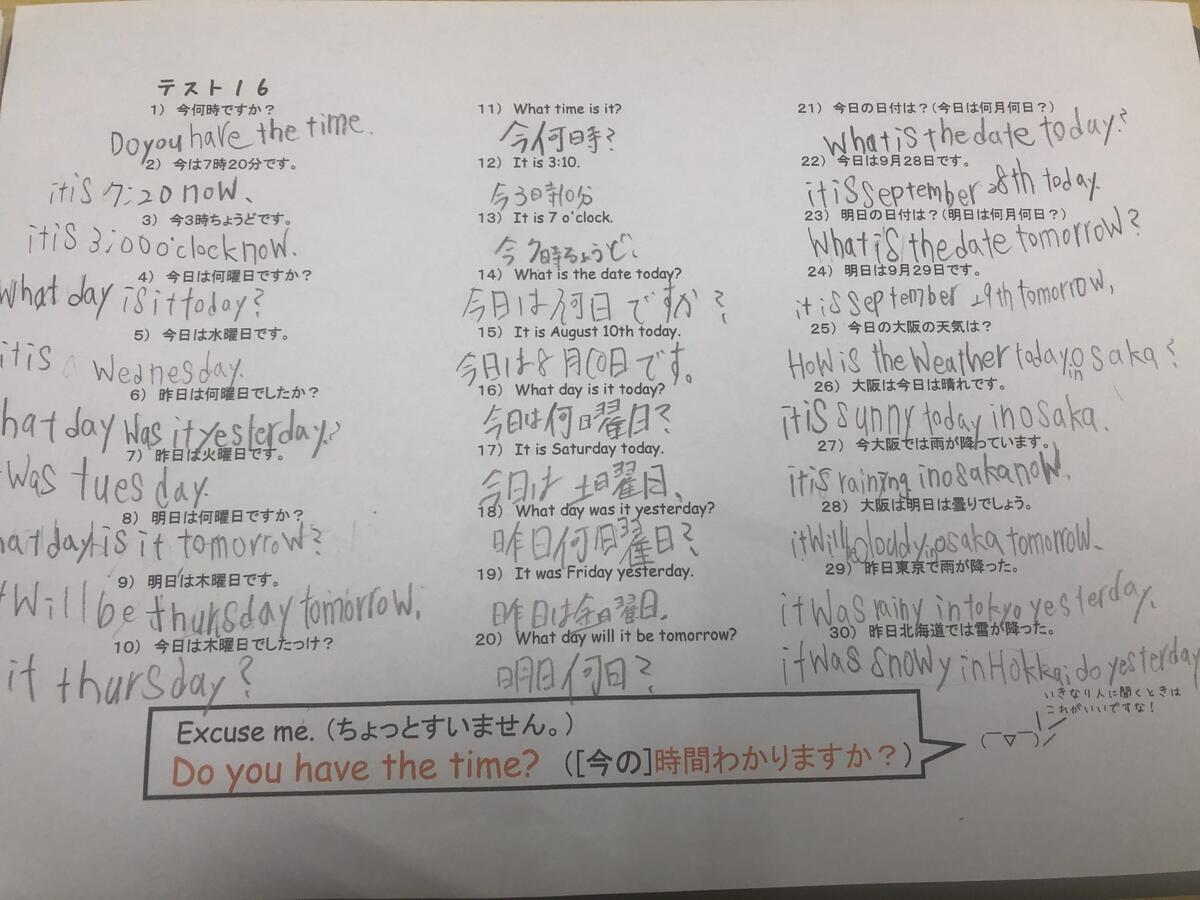 テスト16
1) 今何時ですか？
Do you have the time.
2) 今は7時20分です。
it is 7:20 now、
3) 今3時ちょうどです。
it is 3:00 o'clock now.
4) 今日は何曜日ですか？
What day is it today?
5) 今日は水曜日です。
it is Wednesday.
6) 昨日は何曜日でしたか？
hat day was it yesterday.?
7) 昨日は火曜日です。
was tuesday.
8) 明日は何曜日ですか？
hat day is it tomorrow?
9) 明日は木曜日です。
t will be thursday tomorrow.
10) 今日は木曜日でしたっけ？
it thursday?
11) What time is it?
今何時？
12) It is 3:10.
今3時10分
13) It is 7 o'clock.
今7時ちょうど、
14) What is the date today?
今日は何日ですか？
15) It is August 10th today.
今日は8月10日です。
16) What day is it today?
今日は何曜日？
17) It is Saturday today.
今日は土曜日、
18) What day was it yesterday?
昨日何曜日？
19) It was Friday yesterday.
昨日は金曜日.
20) What day will it be tomorrow?
明日何日？
21) 今日の日付は？(今日は何月何日？)
What is the date today?
22) 今日は9月28日です。
it is september 28th today.
23) 明日の日付は？(明日は何月何日？)
What is the date tomorrow?
24) 明日は9月29日です。
it is september 29th tomorrow,
25) 今日の大阪の天気は？
How is the weather today in osaka?
26) 大阪は今日は晴れです。
it is sunny today in osaka.
27) 今大阪では雨が降っています。
it is raining in osaka now.
28) 大阪は明日は曇りでしょう。
it will be cloudy in osaka tomorrow、
29) 昨日東京で雨が降った。
it was rainy in tokyo yesterday.
30) 昨日北海道では雪が降った。
it was snowy in Hokkaido yesterday
Excuse me. (ちょっとすいません。)
Do you have the time? ([今の]時間わかりますか？)
いきなり人に聞くときは
これがいいですな！
(￣▽￣)